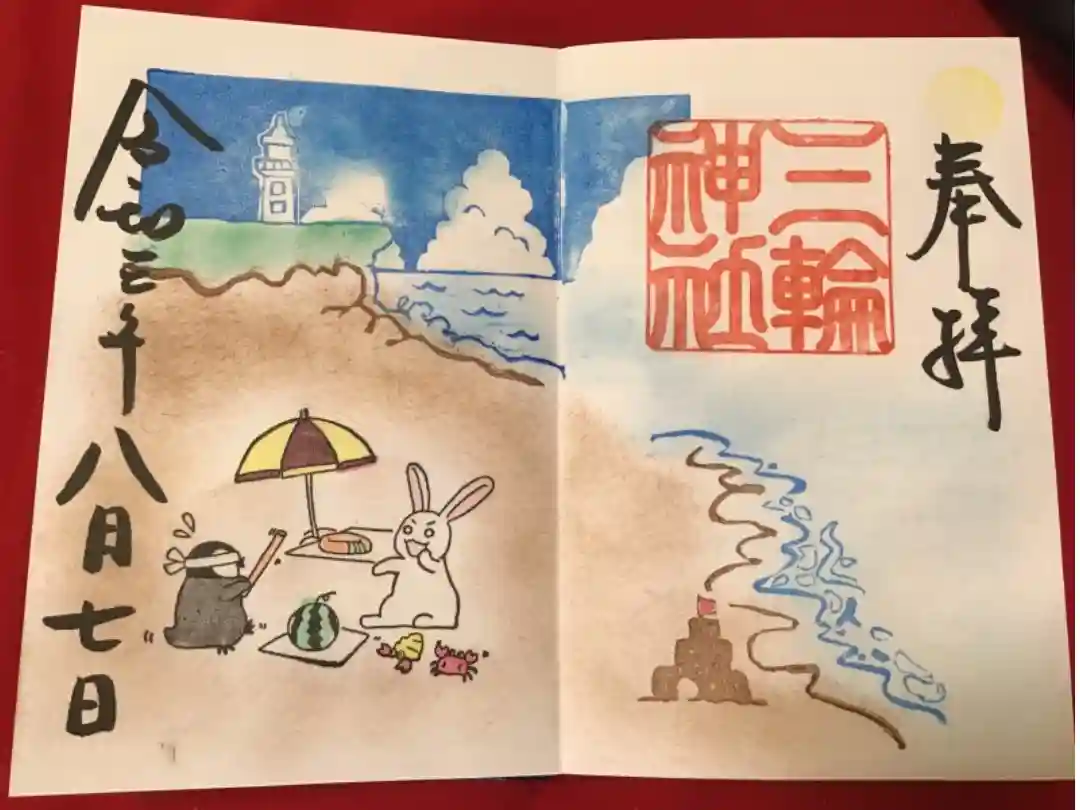 奉拝
三輪
神社
令和三年八月七日